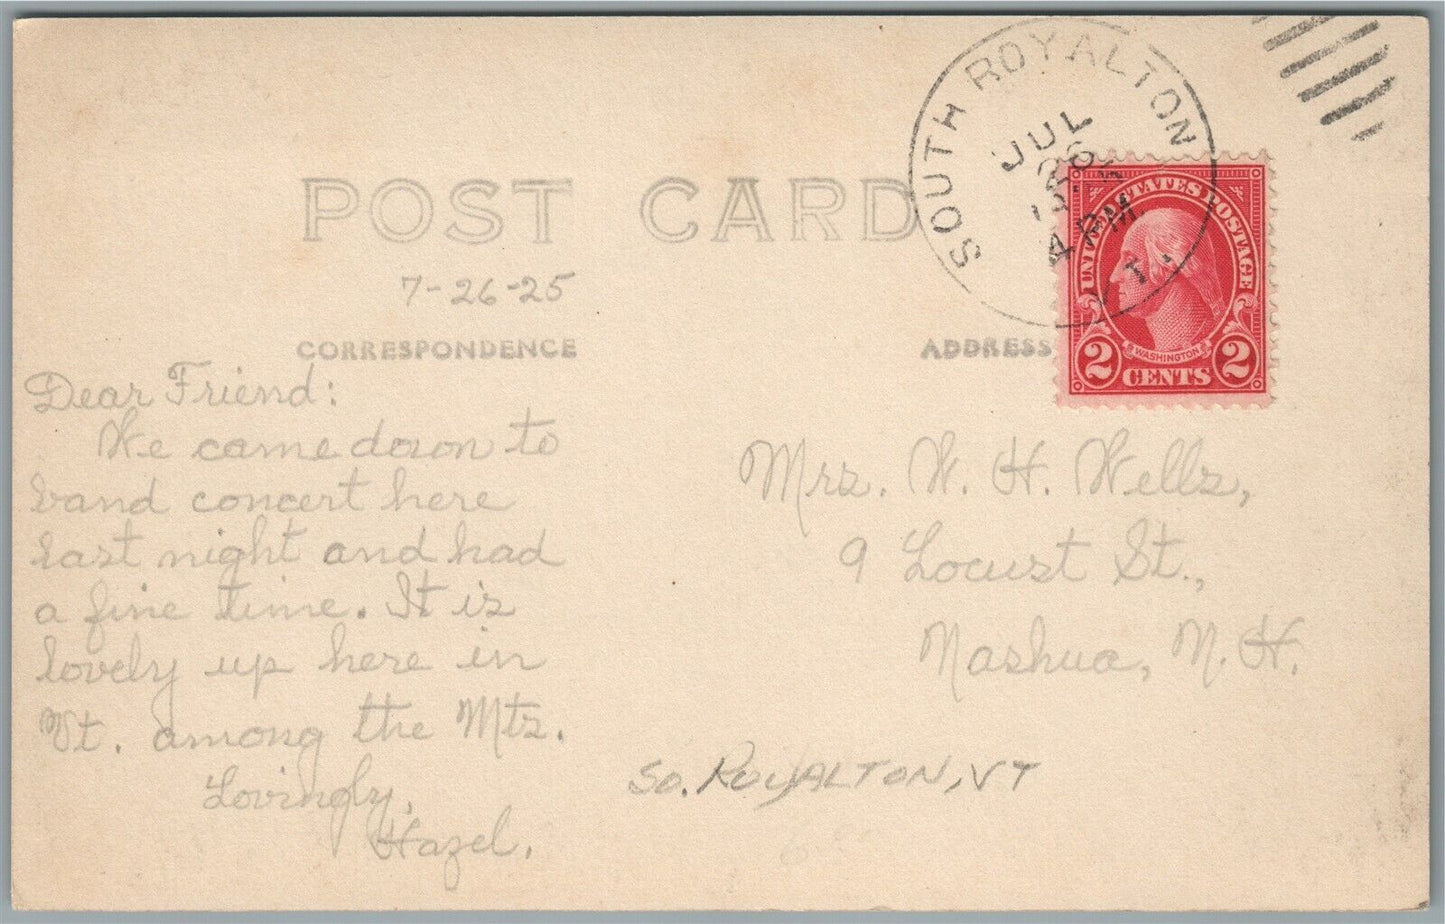 SOUTH ROYALTON
JUL
26
4 PM
VT.
UNITED STATES POSTAGE
WASHINGTON
2 CENTS 2
POST CARD
7-26-25
CORRESPONDENCE
ADDRESS
Dear Friend:
We came down to
band concert here
last night and had
a fine time. It is
lovely up here in
Vt. among the Mts.
Lovingly,
Hazel.
Mrs. W. H. Wells,
9 Locust St.,
Nashua, N. H.
SO. ROYALTON, VT